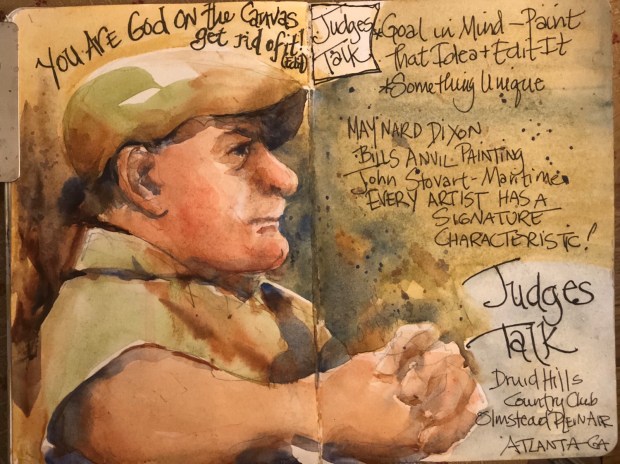 You Are God On the Canvas
get rid of it!
(Edit)
Judges
Talk
*Goal in Mind - Paint
that Idea + Edit-It
*Something Unique
MAYNARD DIXON
BILLS ANVIL PAINTING
John Stovart - Maritime
EVERY ARTIST HAS A
SIGNATURE
CHARACTERISTIC!
Judges
Talk
Druid Hills
Country Club
Olmstead PLEIN AIR
ATLANTA-GA